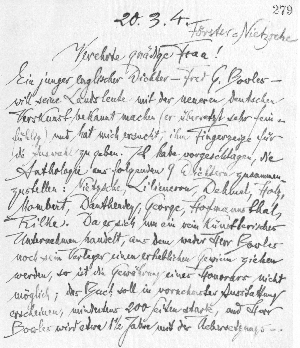 279
20. 3. 4.
Förster-Nietzsche
Verehrte gnädige Frau!
Ein junger englischer Dichter – Fred G. Bowles –
will seine Landsleute mit der neueren deutschen
Verskunst bekannt machen (er übersetzt sehr fein-
fühlig) und hat mich ersucht, ihm Fingerzeige für
die Auswahl zu geben. Ich habe vorgeschlagen, die
Anthologie aus folgenden 9 Dichtern zusammen
zustellen: Nietzsche, Liliencron, Dehmel, Holz,
Mombert, Dauthendey, George, Hofmannsthal,
Rilke. Da es sich um ein rein künstlerisches
Unternehmen handelt, aus dem weder Herr Bowles
noch sein Verleger einen erheblichen Gewinn ziehen
werden, so ist die Gewährung eines Honorars nicht
möglich; das Buch soll in vornehmster Ausstattung
erscheinen, mindestens 200 Seiten stark, und Herr
Bowles wird etwa 1½ Jahre mit der Uebersetzungs-